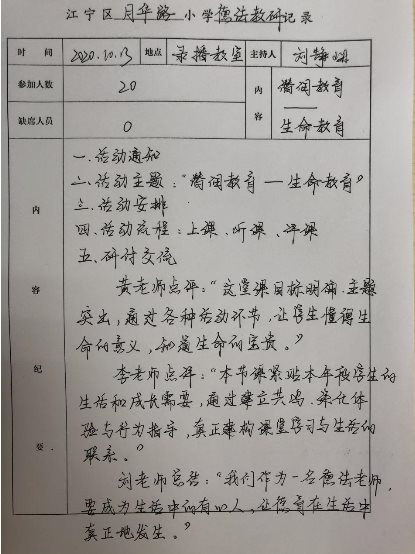 江宁区月华路小学德法教研记录
时间 2020.10.13 地点 录播教室 主持人 刘静
参加人数 20 内容 润泽教育
缺席人员 0 生命教育
内容纪要
一.活动通知
二.活动主题:“润泽教育——生命教育”
三.活动安排
四.活动流程:上课、听课、评课
五.研讨交流
黄老师点评:“这堂课目标明确.主题
突出,通过各种活动环节,让学生懂得生
命的意义,知道生命的宝贵。”
李老师点评:“本节课紧贴本年段学生的
生活和成长需要,通过建立共鸣、深化体
验与行为指导,真正建构课堂学习与生活的
联系。”
刘老师总结:“我们作为一名德法老师,
要成为生活中的有心人,让德育在生活中
真正地发生。”